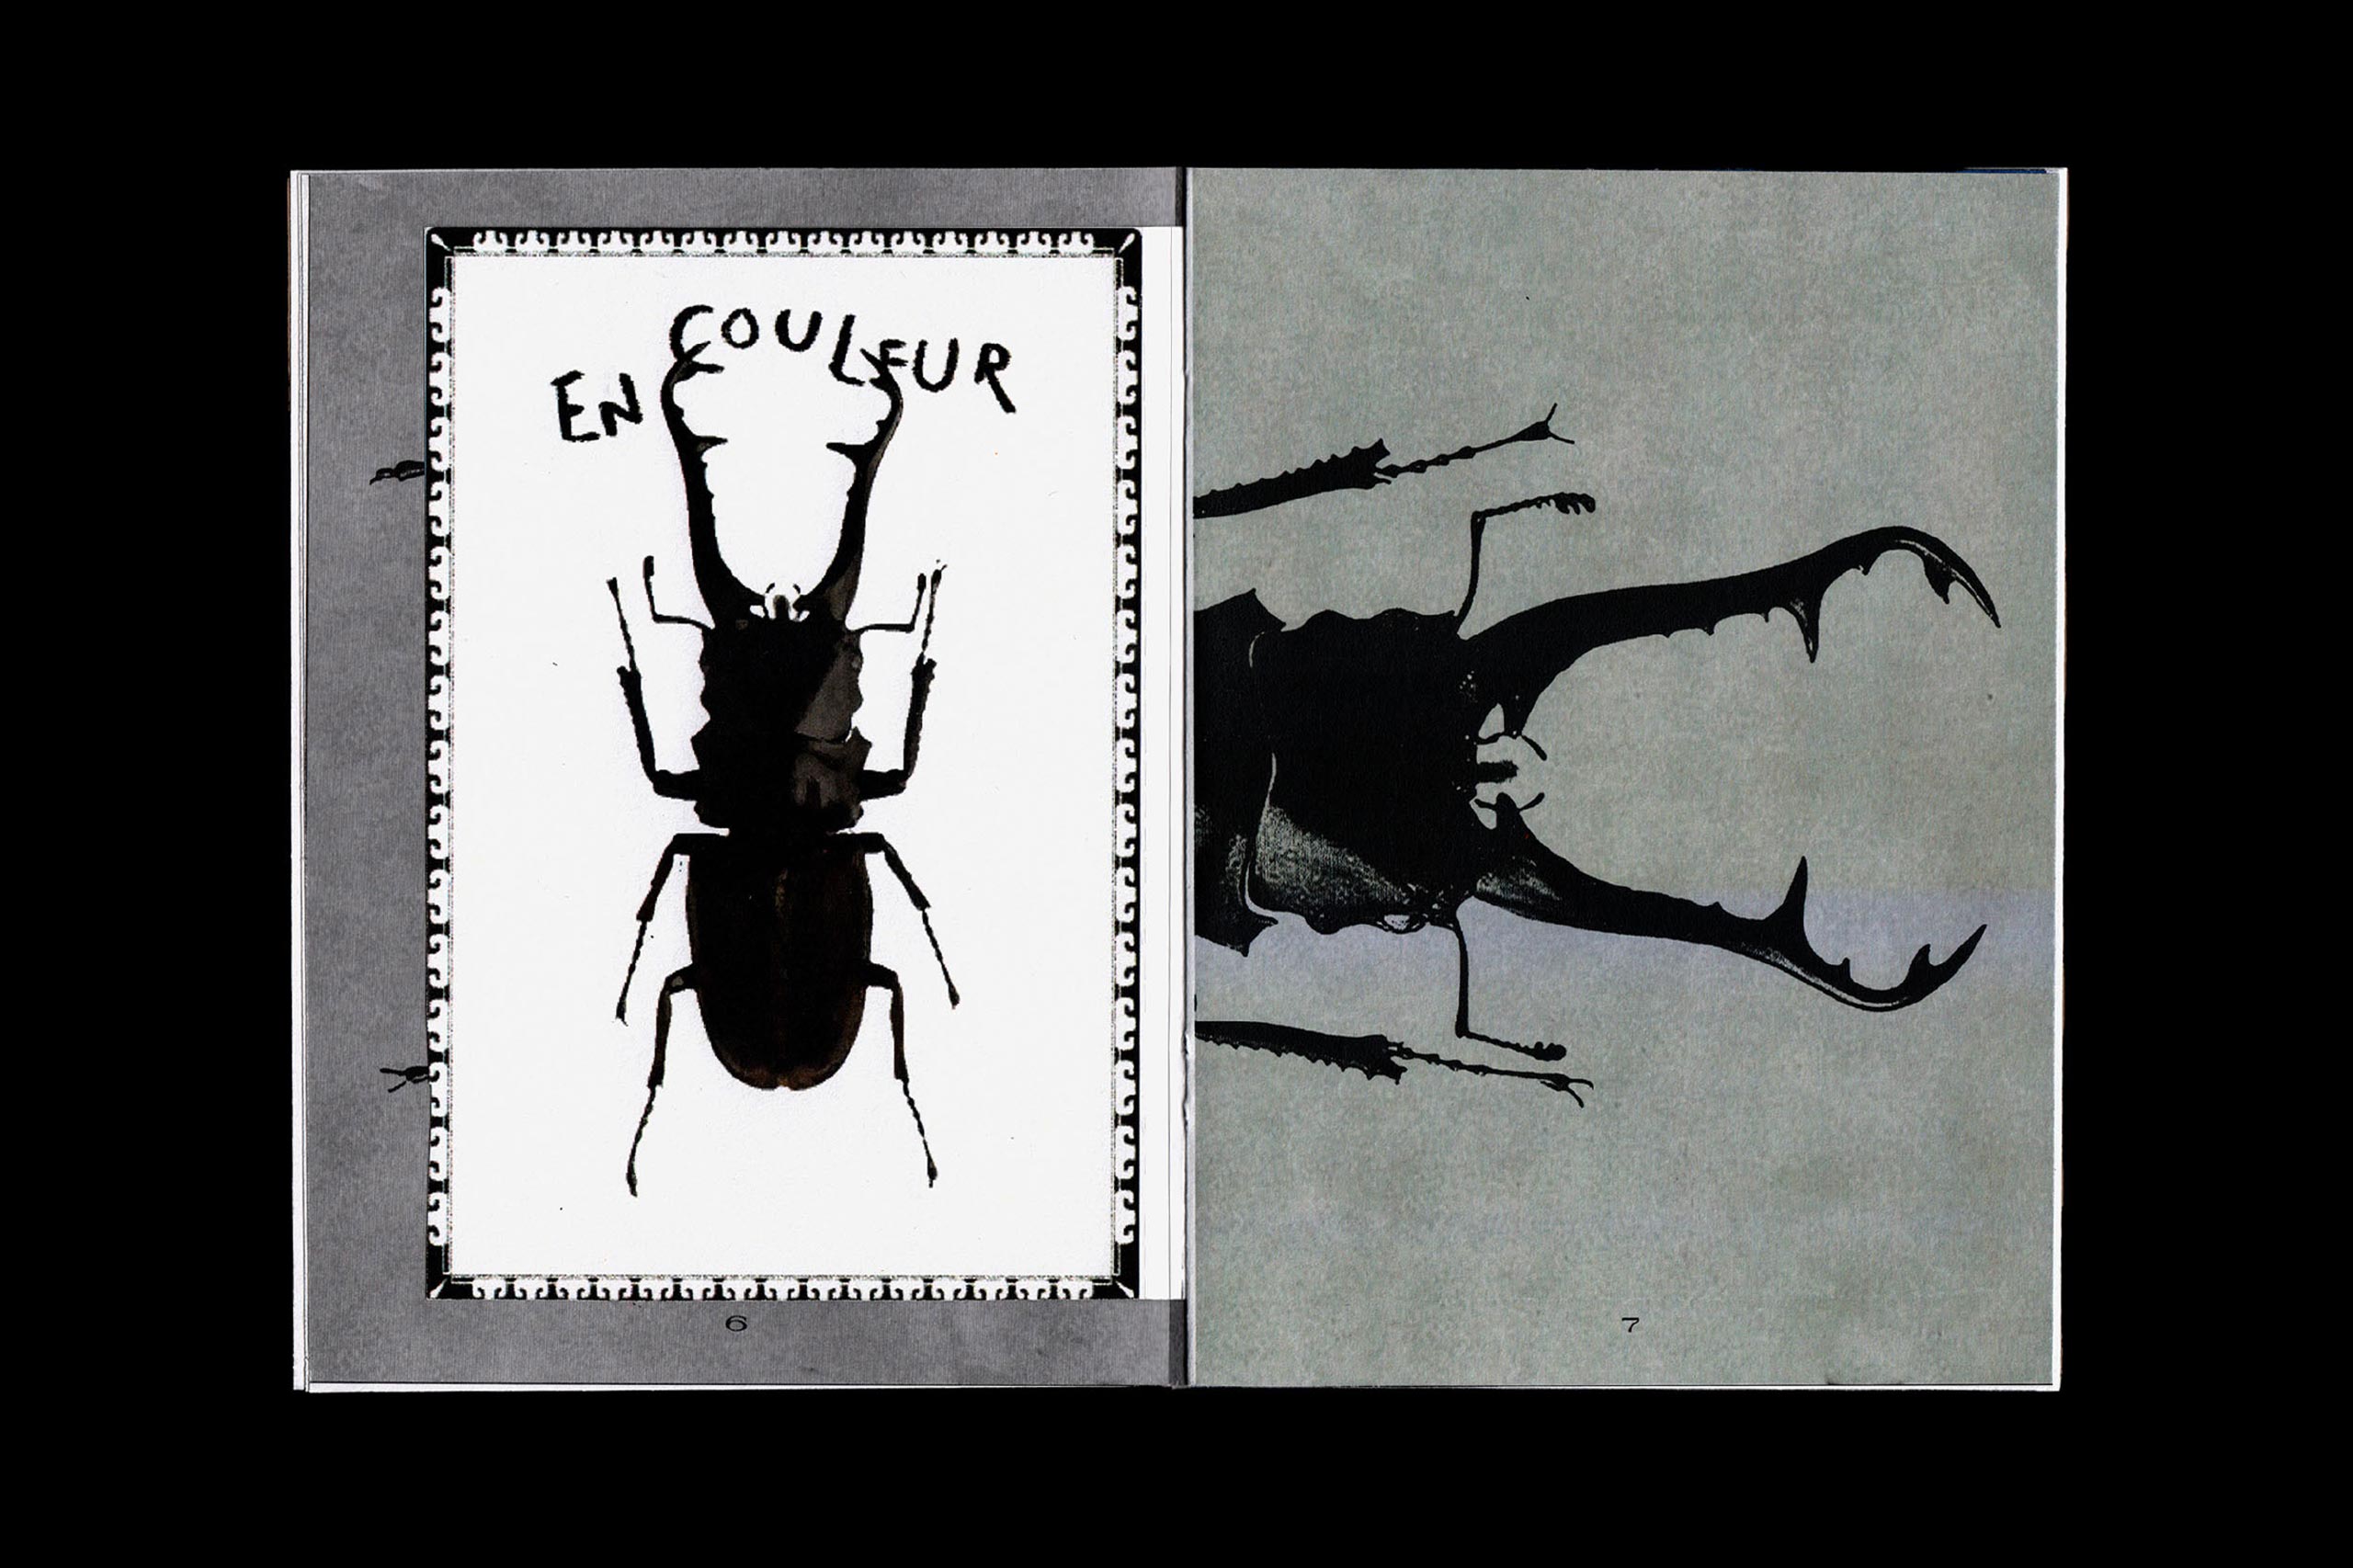 EN COULEUR
6
7